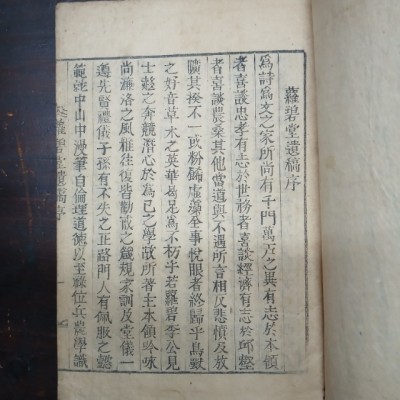 蘿碧堂遺稿序
爲詩爲文之家所尚有千門萬戶之異有志於本領
者喜談忠孝有志於世務者喜談經濟有志於邱壑
者喜談農桑其他當道與不遇所言相反悲憤及放
曠其揆不一或粉餙虛藻全事悅眼者終歸乎鳥獸
之好音草木之英華曷足爲不朽乎若蘿碧李公見
士趍之奔競潛心於爲己之學故所著主本領吟咏
尚濂洛之風雅往復皆勸戒之箴規家訓及堂儀一
遵先賢禮儀子孫有不失之正路門人有佩服之懿
範從中山中漫筆自倫理道德以至祿位兵農學識
蘿碧堂遺稿序
一